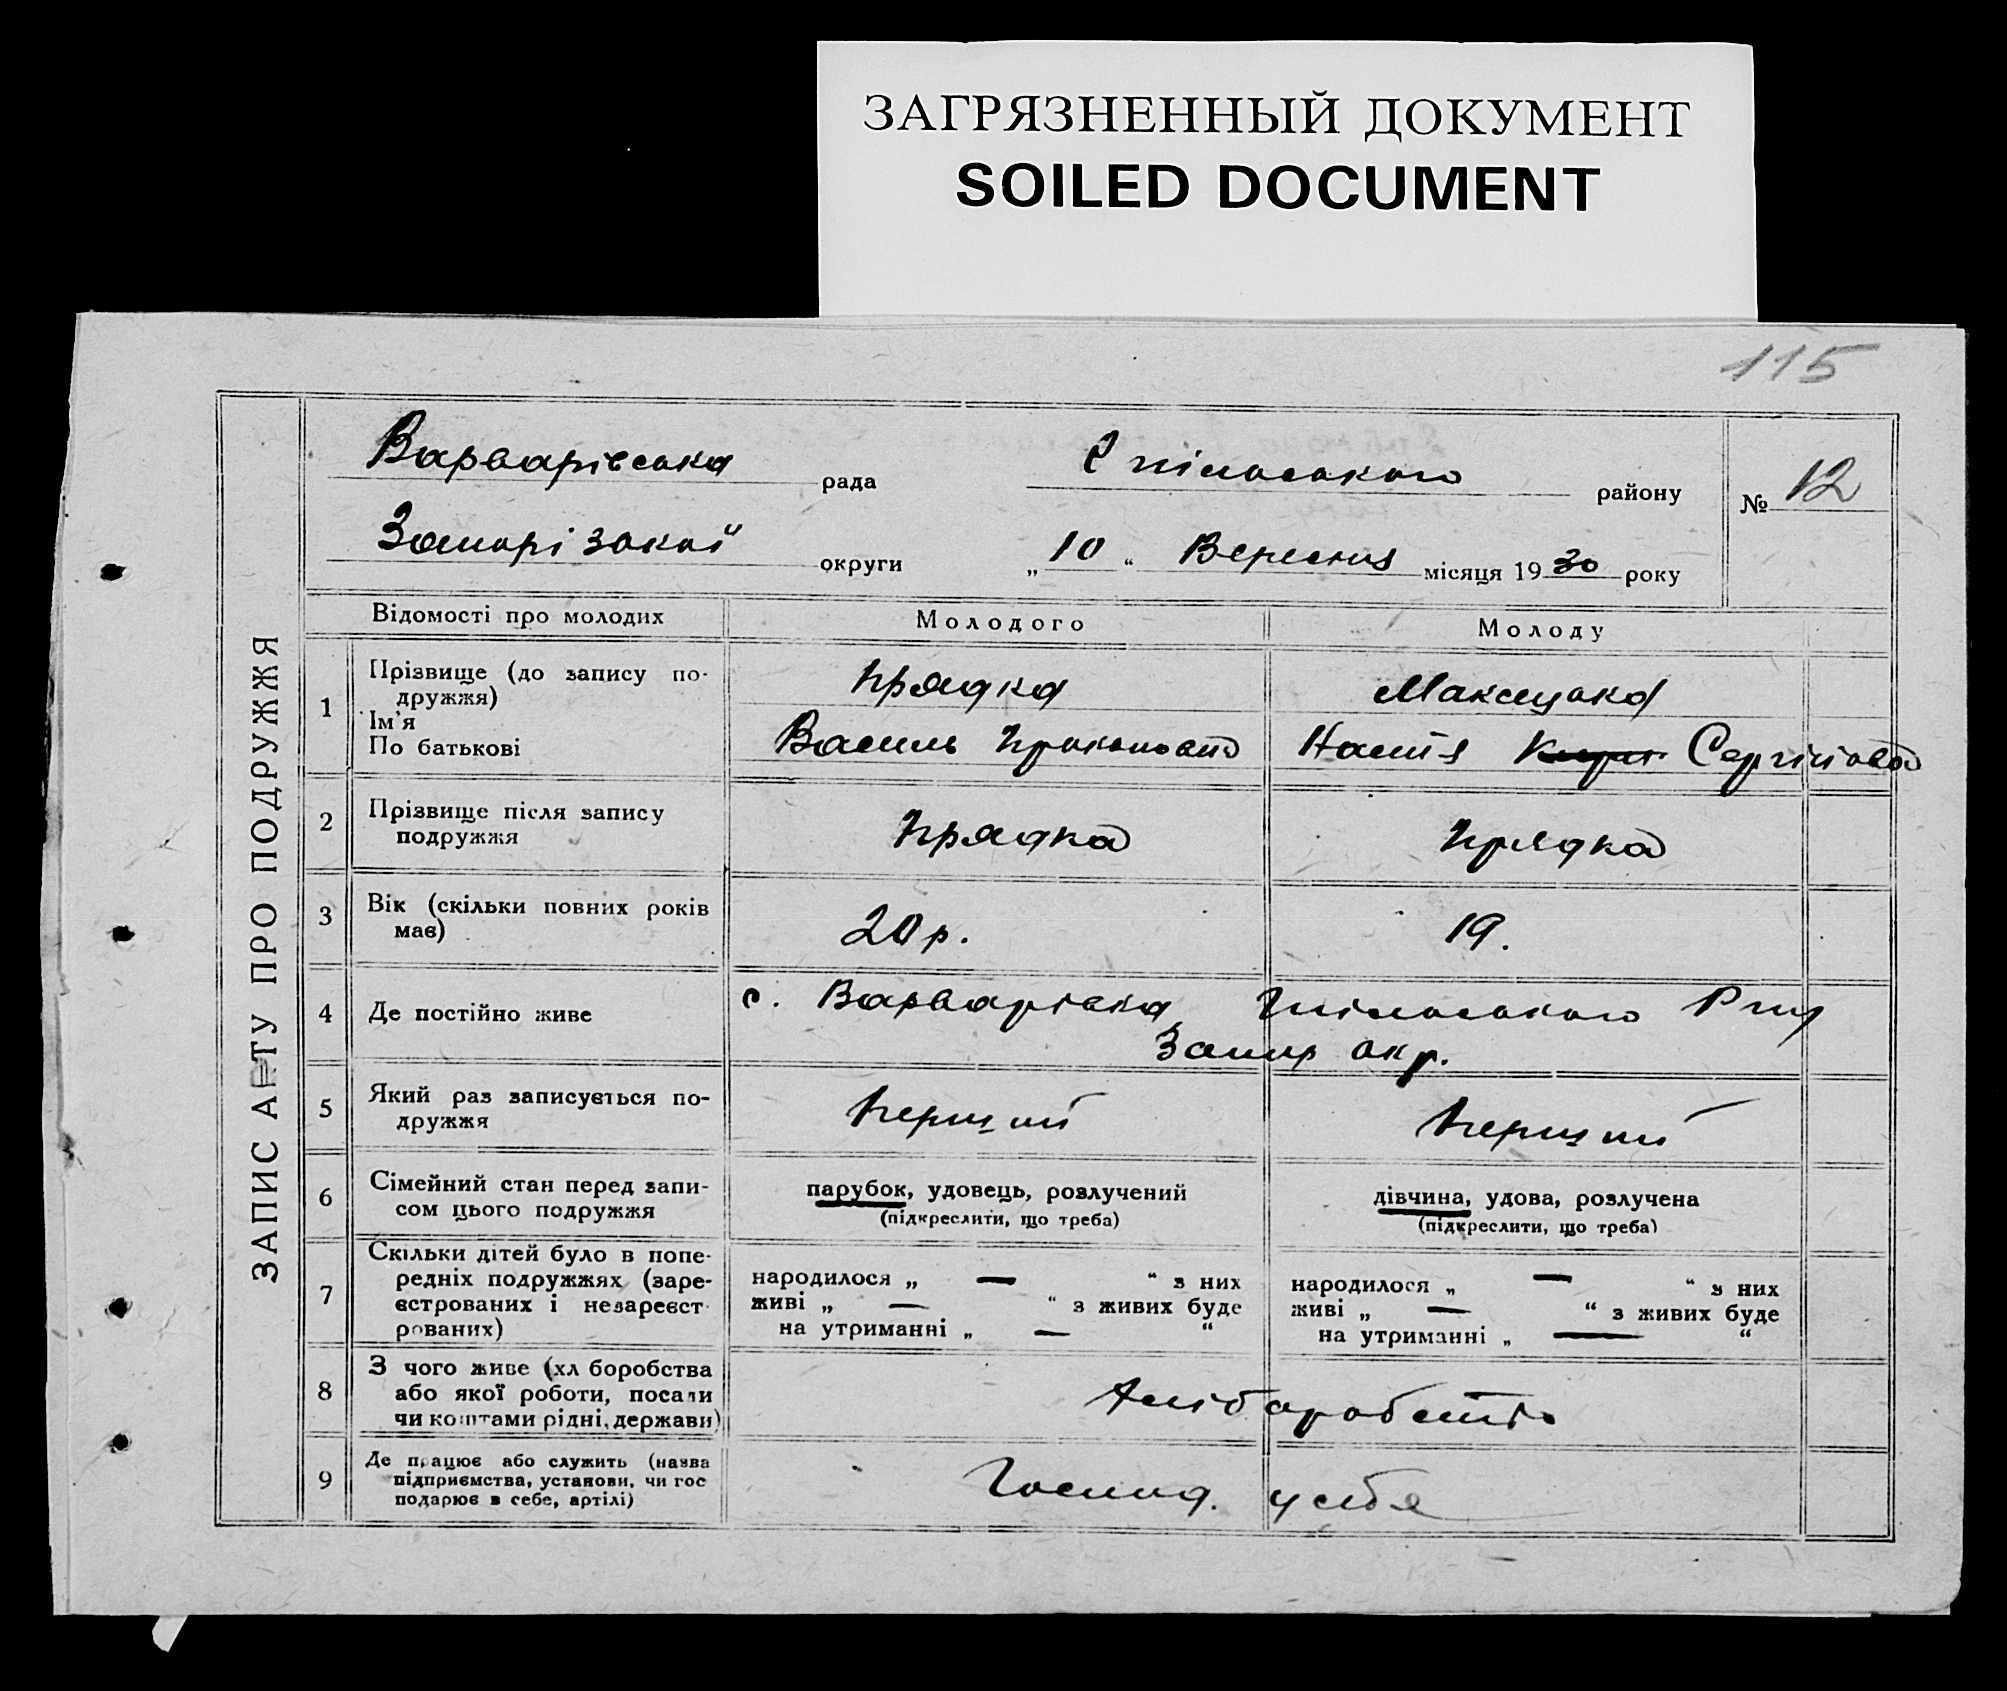 ЗАГРЯЗНЕННЫЙ ДОКУМЕНТ
SOILED DOCUMENT
115
ЗАПИС АКТУ ПРО ПОДРУЖЖЯ
Варварівська рада
району
№ 12
Запорізької округи
„ 10 “ Вересня місяця 1930 року
Відомості про молодих Молодого Молоду
1 Прізвище (до запису по-
дружжя)
Ім'я
По батькові
Прядка
Василь Прокопович
Настя Сергіївна
2 Прізвище після запису
подружжя
Прядка Прядка
3 Вік (скільки повних років
має)
20 р. 19.
4 Де постійно живе
с. Варварівка
Запор окр.
5 Який раз записується по-
дружжя
Перший Перший
6 Сімейний стан перед запи-
сом цього подружжя
парубок, удовець, розлучений
(підкреслити, що треба)
дівчина, удова, розлучена
(підкреслити, що треба)
7 Скільки дітей було в попе-
редніх подружжях (заре-
єстрованих і незареєст
рованих)
народилося „ — “ з них
живі „ — “ з живих буде
на утриманні „ — “
народилося „ — “ з них
живі „ — “ з живих буде
на утриманні „ — “
8 З чого живе (хл боробства
або якої роботи, посади
чи коштами рідні, держави)
9 Де працює або служить (назва
підприємства, установи, чи гос
подарює в себе, артілі)
Господ. у себе